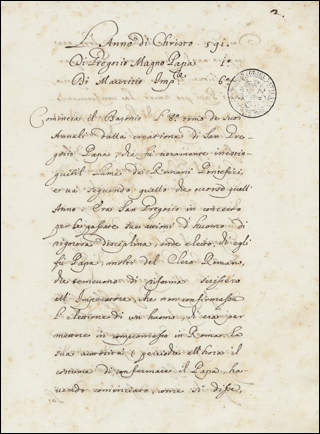 2.
Anno di Christo 591.
Di Gregorio Magno Papa 1º
Di Mauritio Imp.re 6º
Comincia il Baronio l' 8º tomo de suoi
Annali dalla creatione di San Gre
gorio Papa, che fu veramente
lume de Romani Pontefici,
e va seguendo quello che occorse quell'
Anno. Era San Gregorio in concetto
per le passate sue attioni d' huomo di
rigorosa disciplina, onde eletto, che egli
fu Papa, molti del Clero Romano,
che temevano di riforma scrissero
all' Imperatore, che non confirmasse
la elettione di un huomo, che era per
mettere in compromesso in Roma la
sua autorità, perioche all' hora il
costume di confermare il Papa, ha
vendo cominciato, come si disse,